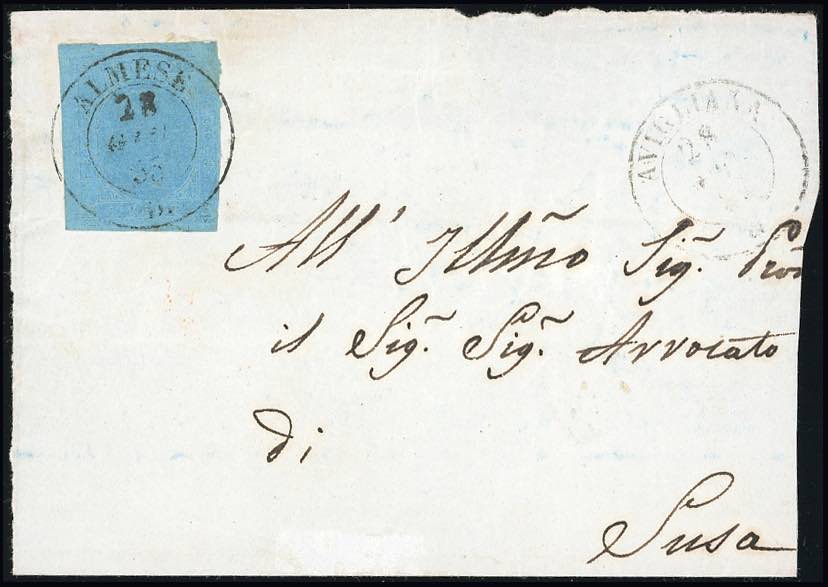 ALMESE
28
55
AVIGLIANA
All' Illm̃o Sig.
il Sig. Sig. Avvocato
di
Susa